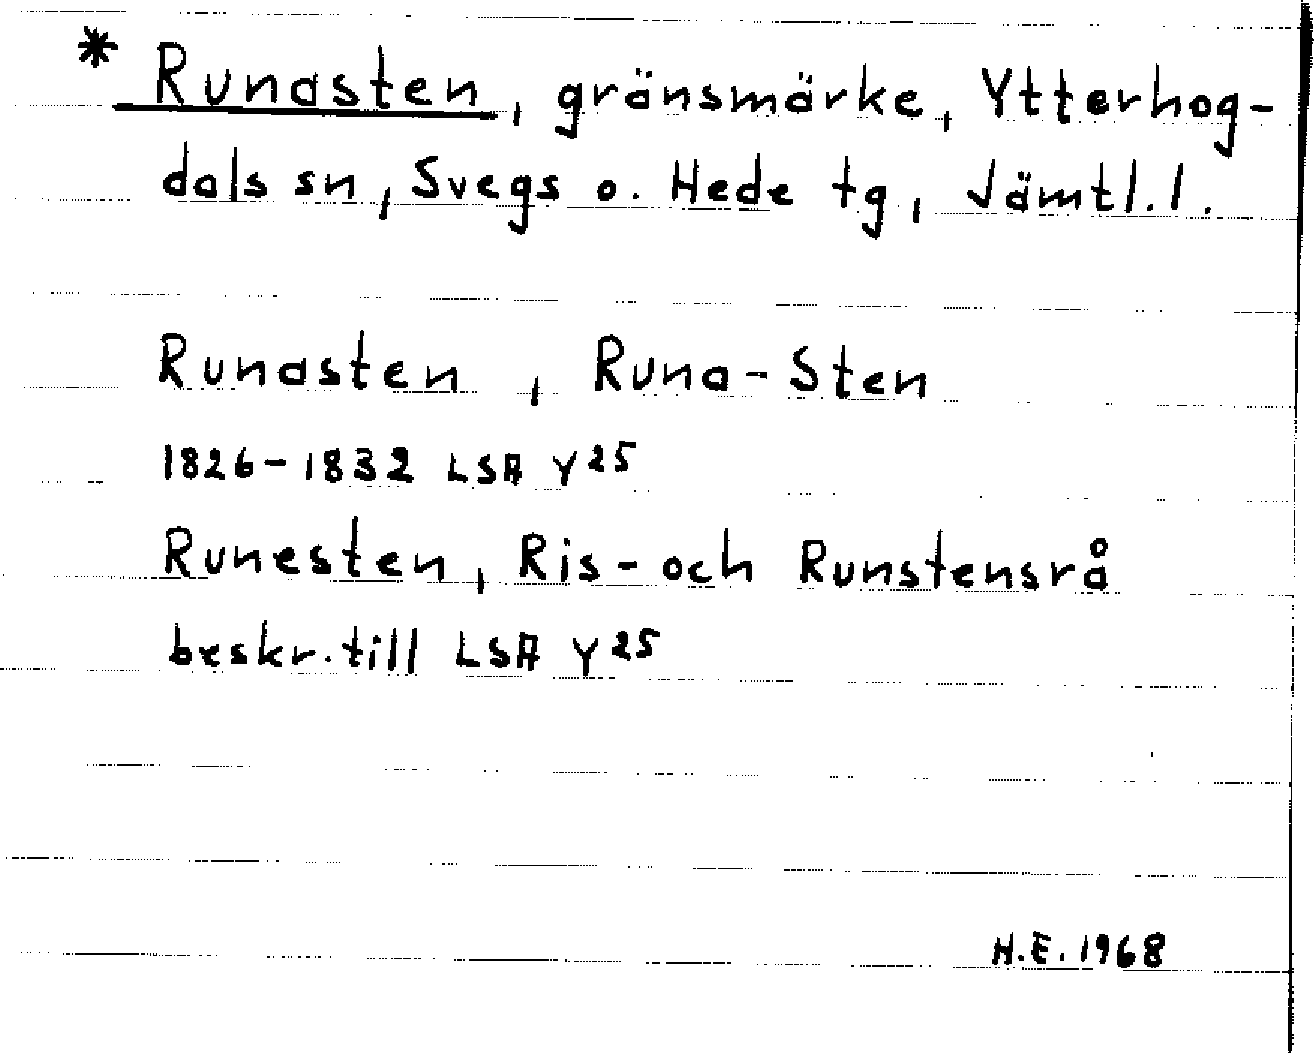 * Runasten, gränsmärke, Ytterhog-
dals sn, Svegs o. Hede tg, Jämtl. l.
Runasten, Runa-Sten
1826-1832 LSA Y25
Runesten, Ris- och Runstensrå
beskr. till LSA Y25
H.E. 1968